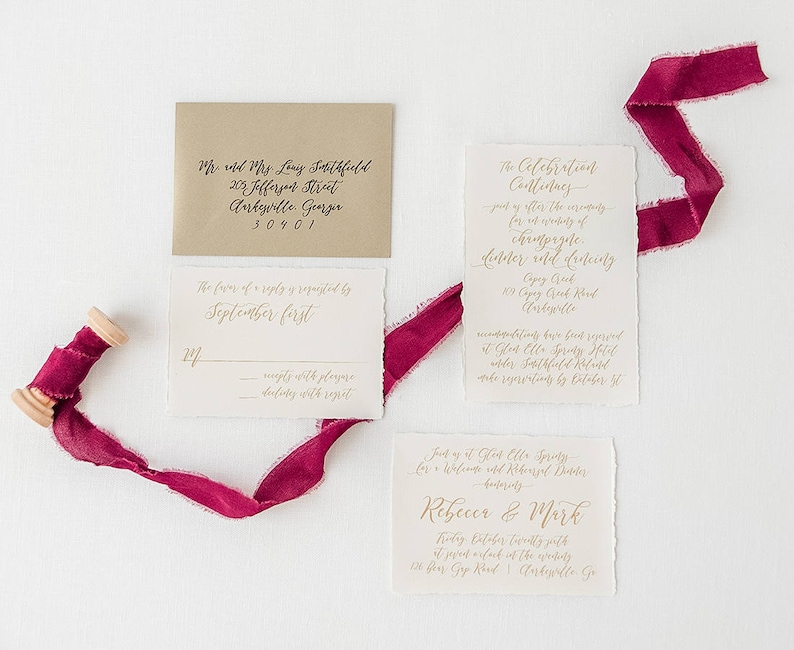 Mr. and Mrs. Louis Smithfield
205 Jefferson Street
Clarkesville, Georgia
30401
The favor of a reply is requested by
September first
M
accepts with pleasure
declines with regret
The Celebration
Continues
join us after the ceremony
for an evening of
champagne,
dinner and dancing
Copey Creek
109 Copey Creek Road
Clarkesville
accommodations have been reserved
at Glen Ella Springs Hotel
under Smithfield Roland
make reservations by October 1st
Join us at Glen Ella Springs
for a Welcome and Rehearsal Dinner
honoring
Rebecca & Mark
Friday, October twenty sixth
at seven o'clock in the evening
126 Bear Gap Road | Clarkesville, Ga